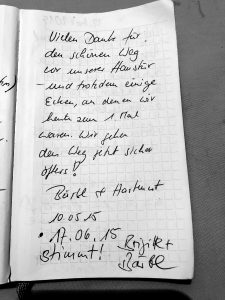 Vielen Dank für
den schönen Weg
vor unserer Haustür
- und trotzdem einige
Ecken, an denen wir
heute zum 1. Mal
waren. Wir gehen
den Weg jetzt sicher
öfters!
Bärbl + Hartmut
10.05.15
• 17.06.15
Stimmt! Brigitte +
Bärbl